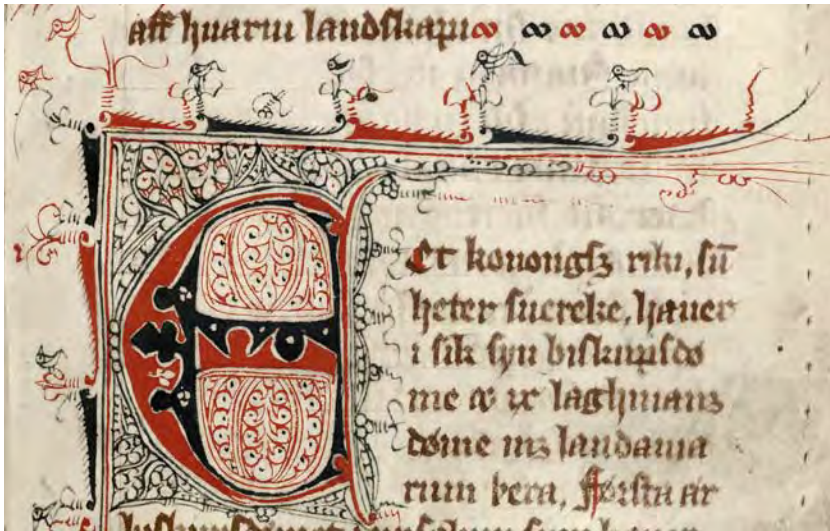 aff huariu landskapi
Et konongsz riki, sū
heter suereke, hauer
i sik syu biskupsdo
me oc ix laghmanz
dóme mz landama
rum þera, fforsta är